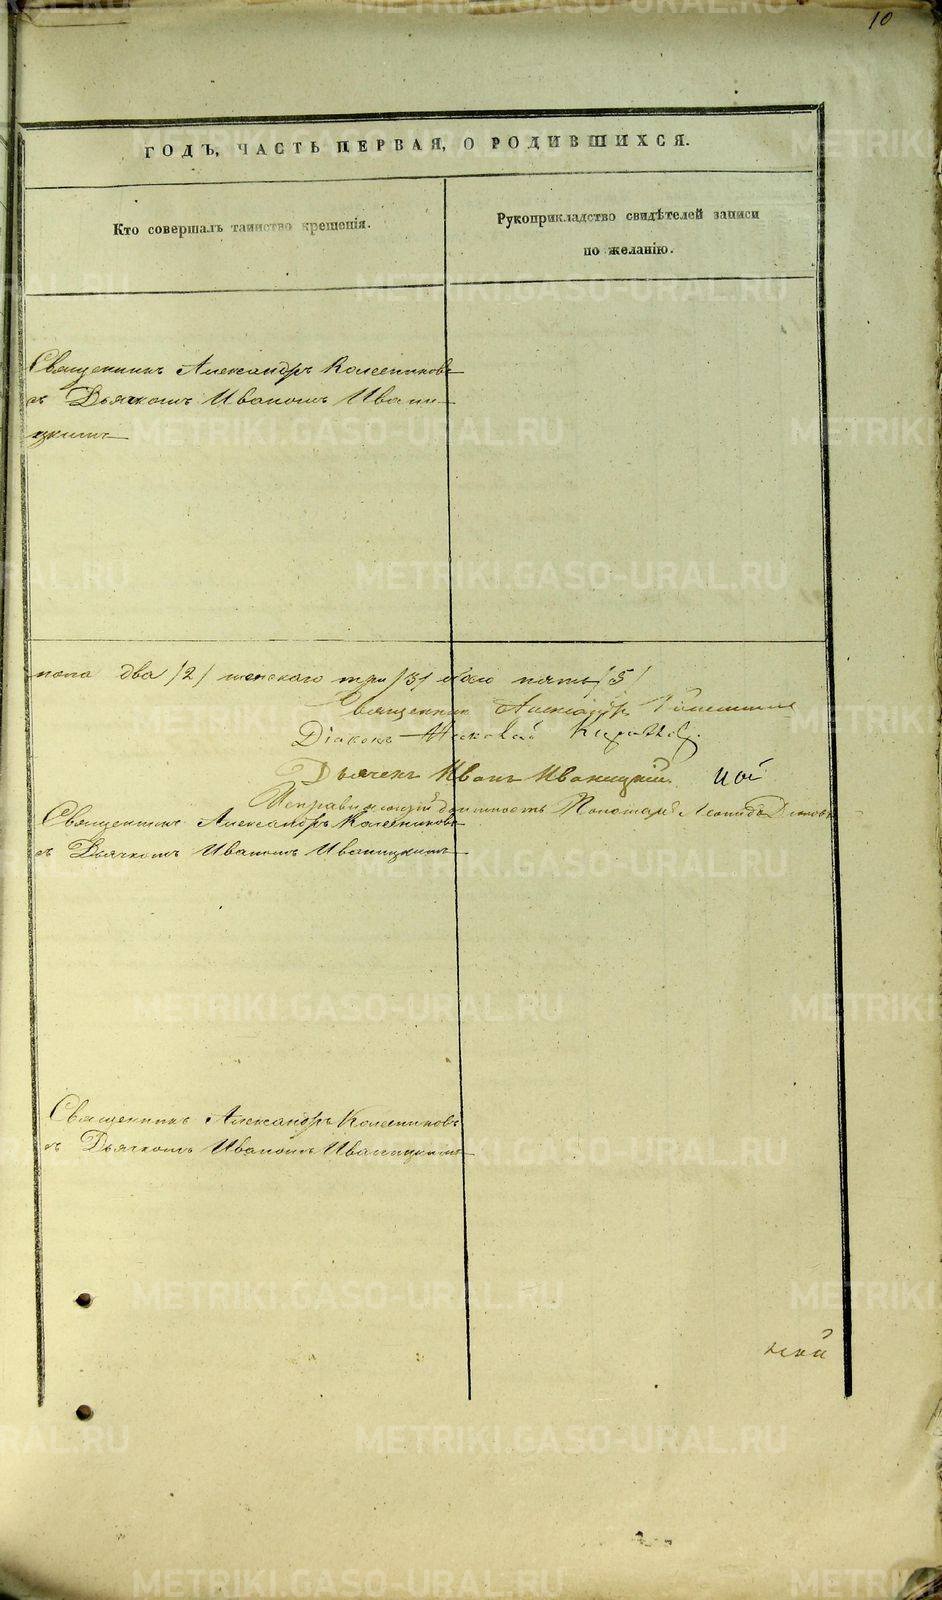 10
ГОДЪ, ЧАСТЬ ПЕРВАЯ, О РОДИВШИХСЯ.
Кто совершалъ таинство крещенія.
Рукоприкладство свидѣтелей записи
по желанію.
Священникъ Александръ Колесниковъ
съ Дьячкомъ Иваномъ Ивани-
цкимъ
пола два /2/ женскаго три /3/ обоего пять /5/
Священник Александръ
Діаконъ
Дьячекъ Иванъ Иваницкий
Исправляющій должность Пономаря Леонидъ
Священникъ Александръ Колесниковъ
съ Дьячкомъ Иваномъ Иваницкимъ
Священникъ Александръ Колесниковъ
съ Дьячкомъ Иваномъ Иваницкимъ
METRIKI.GASO-URAL.RU